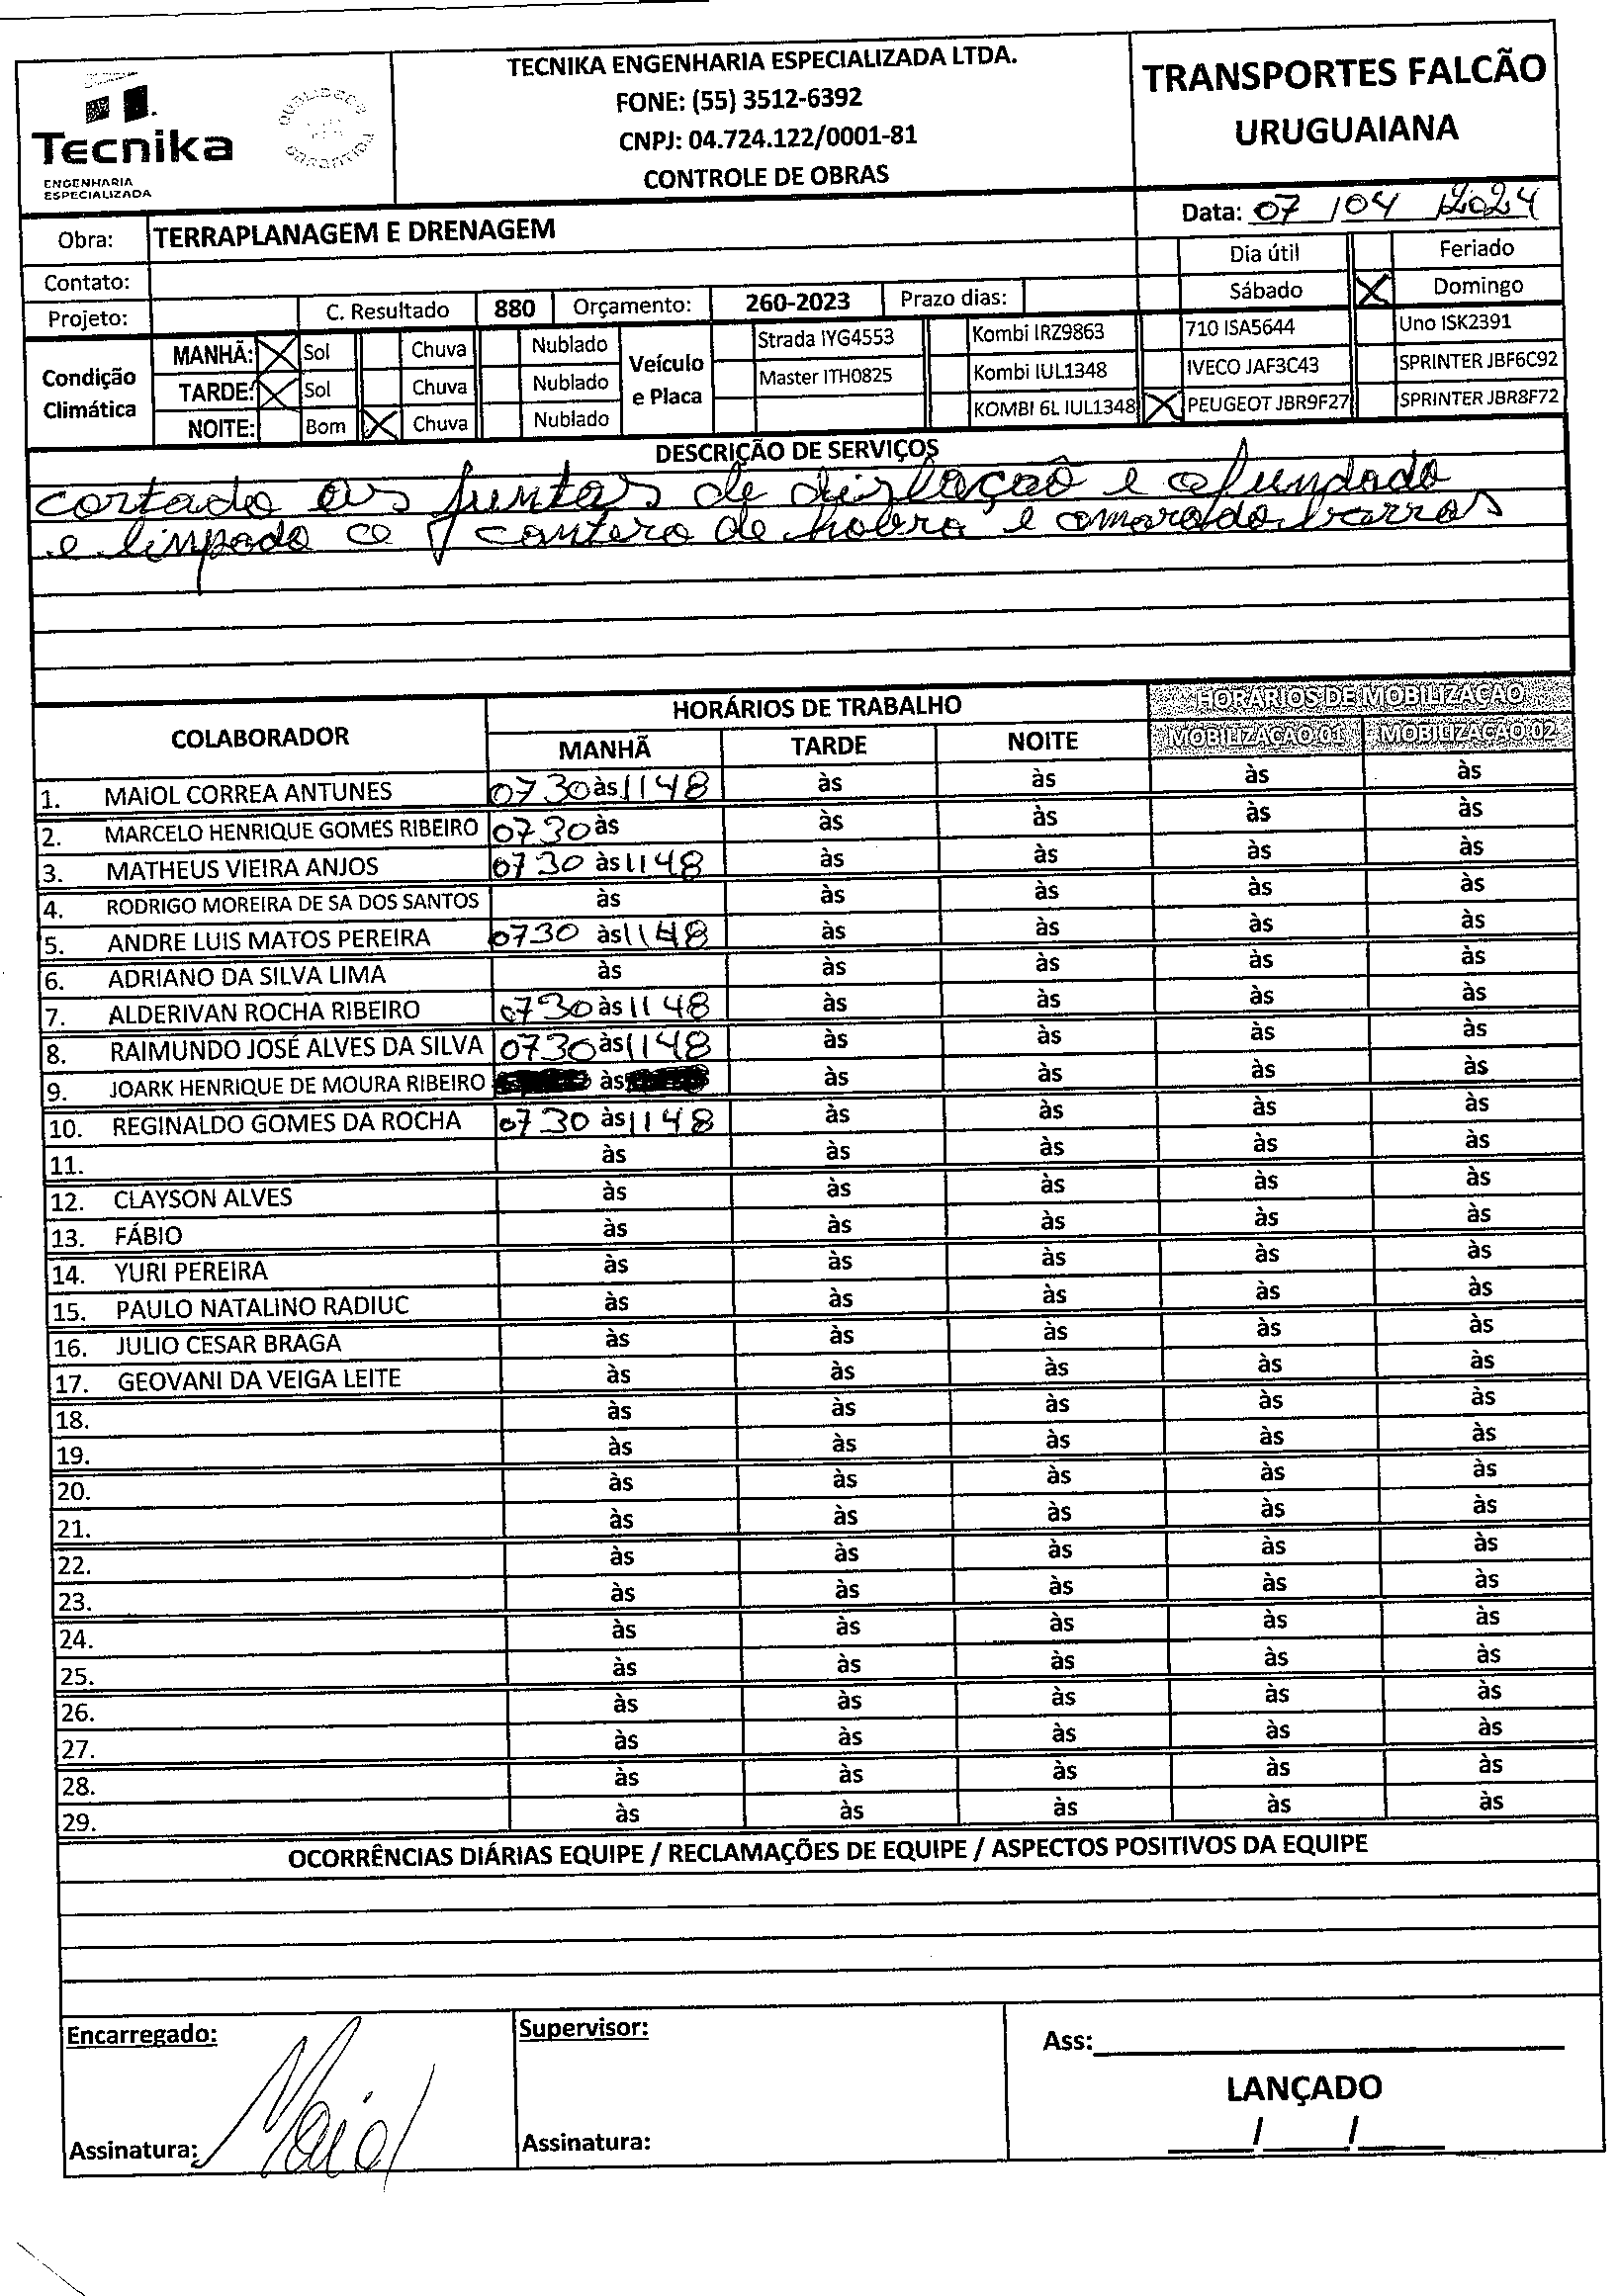 Tecnika
ENGENHARIA
ESPECIALIZADA
TECNIKA ENGENHARIA ESPECIALIZADA LTDA.
FONE: (55) 3512-6392
CNPJ: 04.724.122/0001-81
CONTROLE DE OBRAS
TRANSPORTES FALCÃO
URUGUAIANA
Data: 07 / 04 / 2024
Obra: TERRAPLANAGEM E DRENAGEM
Dia útil Feriado
Contato:
Sábado X Domingo
Projeto: C. Resultado 880 Orçamento: 260-2023 Prazo dias:
Condição Climática
MANHÃ: X Sol Chuva Nublado
TARDE: X Sol Chuva Nublado
NOITE: Bom X Chuva Nublado
Veículo e Placa
Strada IYG4553 Kombi IRZ9863 710 ISA5644 Uno ISK2391
Master ITH0825 Kombi IUL1348 IVECO JAF3C43 SPRINTER JBF6C92
KOMBI 6L IUL1348 X PEUGEOT JBR9F27 SPRINTER JBR8F72
DESCRIÇÃO DE SERVIÇOS
cortado as juntas de dislação e afundado
e limpado ce cantero de hobra e amarado barras
COLABORADOR HORÁRIOS DE TRABALHO HORÁRIOS DE MOBILIZAÇÃO
MANHÃ TARDE NOITE MOBILIZAÇÃO 01 MOBILIZAÇÃO 02
1. MAIOL CORREA ANTUNES 0730 às 1148 às às às às
2. MARCELO HENRIQUE GOMES RIBEIRO 0730 às às às às às
3. MATHEUS VIEIRA ANJOS 0730 às 1148 às às às às
4. RODRIGO MOREIRA DE SA DOS SANTOS às às às às às
5. ANDRE LUIS MATOS PEREIRA 0730 às 1148 às às às às
6. ADRIANO DA SILVA LIMA às às às às às
7. ALDERIVAN ROCHA RIBEIRO 0730 às 1148 às às às às
8. RAIMUNDO JOSÉ ALVES DA SILVA 0730 às 1148 às às às às
9. JOARK HENRIQUE DE MOURA RIBEIRO às às às às às
10. REGINALDO GOMES DA ROCHA 0730 às 1148 às às às às
11. às às às às às
12. CLAYSON ALVES às às às às às
13. FÁBIO às às às às às
14. YURI PEREIRA às às às às às
15. PAULO NATALINO RADIUC às às às às às
16. JULIO CESAR BRAGA às às às às às
17. GEOVANI DA VEIGA LEITE às às às às às
18. às às às às às
19. às às às às às
20. às às às às às
21. às às às às às
22. às às às às às
23. às às às às às
24. às às às às às
25. às às às às às
26. às às às às às
27. às às às às às
28. às às às às às
29. às às às às às
OCORRÊNCIAS DIÁRIAS EQUIPE / RECLAMAÇÕES DE EQUIPE / ASPECTOS POSITIVOS DA EQUIPE
Encarregado: Supervisor: Ass:
LANÇADO
Assinatura: Maiol Assinatura: / /